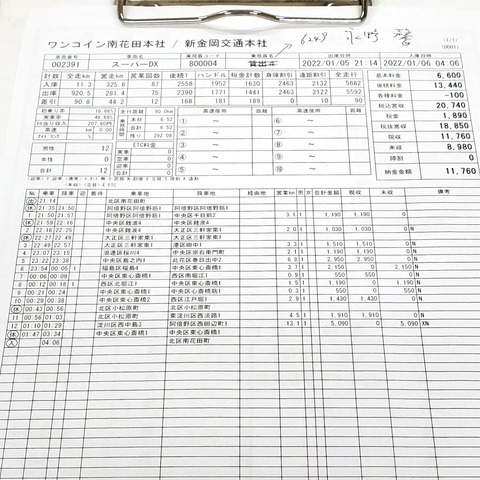 ワンコイン南花田本社 / 新金岡交通本社
6249
(1/1)
(0001)
車両番号 車両名 乗務員コード 乗務員名 出庫日時 入庫日時
002391 スーパーDX 800004 貸出4 2022/01/05 21:14 2022/01/06 04:06
計数 全走km 実車km 営業回数 後続1 ハンドル 税金計数 身障割引 遠距割引 全走行
入庫 11.3 325.6 87 2558 1952 1630 2463 2132 5682
出庫 920.5 281.4 75 2390 1771 1441 2463 2122 5592
差引 90.8 44.2 12 168 181 189 0 10 90
基本料金 6,600
後続料金 13,440
各種料金 -100
税込営収 20,740
税金 1,890
税抜営収 18,850
現収 11,760
未収 8,980
障割 0
納金金額 11,760
実車率 48.68%
高速 0.00
走行距離 90.0km
高速使用 距離 高速使用 距離
① ⑥
② ⑦
③ ⑧
④ ⑨
⑤ ⑩
男性 12
女性 0
合計 12
ETC料金
実車 0
空車 0
迎車 0
合計 0
No. 乗車 降車 迎 着待 乗車地 降車地 経由地 営業km 男 女 合計金額 現収 未収 備考
出 21:14 北区南花田町
休 21:35 21:50 阿倍野区阿倍野筋1 阿倍野区阿倍野筋1
1 21:50 21:57 阿倍野区阿倍野筋1 中央区千日前2 3.1 1 1,190 1,190 0
休 21:59 22:16 中央区難波4 中央区難波4
2 22:16 22:25 中央区難波4 大正区三軒家東1 2.0 1 1,030 1,030 0 N
休 22:27 22:49 大正区三軒家東1 大正区三軒家東1
3 22:49 22:57 大正区三軒家東1 港区田中1 3.3 1 1,510 1,510 0 N
4 23:07 23:15 浪速区桜川4 中央区宗右衛門町 2.1 1 1,190 1,190 0 N
5 23:22 23:38 中央区島之内1 此花区春日出中2 6.8 1 2,950 2,950 0 N
6 23:54 00:05 1 福島区福島4 中央区東心斎橋1 3.7 1 2,150 0 2,150 N
7 00:06 00:09 中央区東心斎橋1 西区南堀江1 0.9 1 550 550 0 N
8 00:12 00:18 1 西区北堀江1 中央区東心斎橋1 1.5 1 1,190 0 1,190 N
9 00:21 00:24 中央区東心斎橋1 中央区東心斎橋2 0.3 1 550 0 550 N
10 00:29 00:38 中央区東心斎橋2 西区江戸堀1 2.9 1 1,430 1,430 0 N
休 00:43 00:56 北区小松原町 北区小松原町
11 00:56 01:03 北区小松原町 東淀川区西淡路1 4.5 1 1,910 1,910 0 N
12 01:10 01:29 淀川区西中島3 阿倍野区西田辺町1 13.1 1 5,090 0 5,090 XN
休 01:47 03:34 中央区東心斎橋1 中央区東心斎橋1
入 04:06 北区南花田町